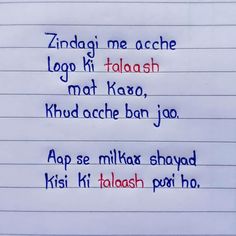 Zindagi me acche
Logo ki talaash
mat karo,
Khud acche ban jao.
Aap se milkar shayad
Kisi ki talaash puri ho.